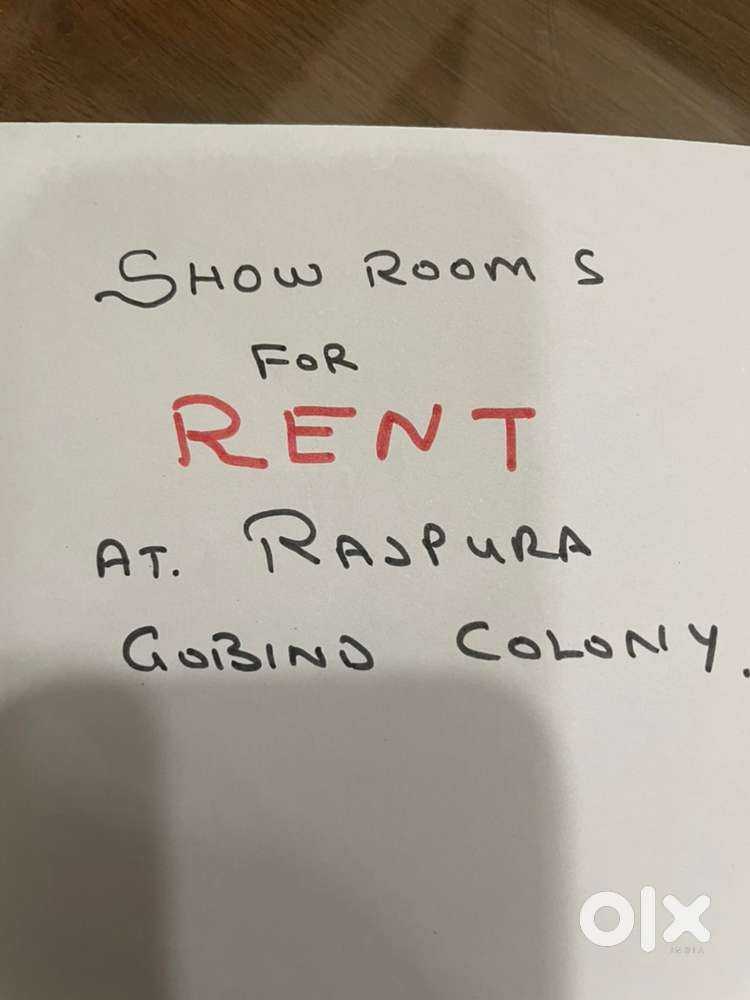 SHOW ROOMS
FOR
RENT
AT. RAJPURA
GOBIND COLONY.
olx
INDIA